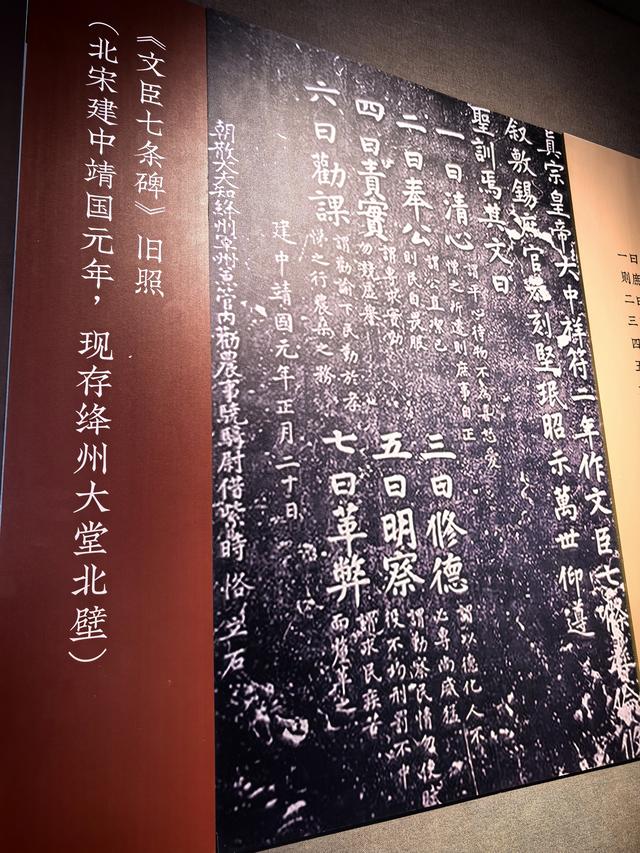 《文臣七条碑》旧照
（北宋建中靖国元年，现存绛州大堂北壁）
真宗皇帝大中祥符二年作文臣七條
叙敷錫庶官恭刻堅珉昭示萬世仰遵
聖訓焉其文曰
一曰清心
謂平心待物不為喜怒愛
憎之所遷則庶事自正
二曰奉公
謂公直潔己
則民自畏服
三曰修德
謂以德化人不
必專尚威猛
四曰責實
謂專求實効
勿競虛譽
五曰明察
謂勤察民情勿使賦
役不均刑罰不中
六曰勸課
謂勸諭下民勤於孝
悌之行農桑之務
七曰革弊
謂求民疾苦
而釐革之
建中靖國元年正月二十日
朝散大夫知絳州軍州兼管内勸農事驍騎尉借紫時恪立石
一曰
则庶
二曰
三
四
五